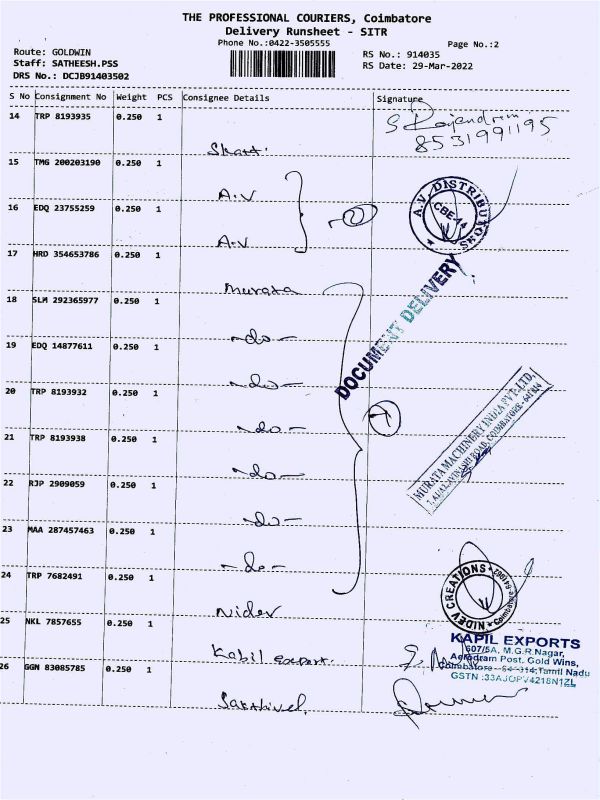 THE PROFESSIONAL COURIERS, Coimbatore
Delivery Runsheet - SITR
Phone No.:0422-3505555
Page No.:2
Route: GOLDWIN
Staff: SATHEESH.PSS
DRS No.: DCJB91403502
RS No.: 914035
RS Date: 29-Mar-2022
S No Consignment No Weight PCS Consignee Details Signature
14 TRP 8193935 0.250 1
S Rajendran
8531991195
15 TMG 200203190 0.250 1
A.V
16 EDQ 23755259 0.250 1
A.V
2
A.V. DISTRIBUTORS
CBE-14
17 HRD 354653786 0.250 1
Murata
18 SLM 292365977 0.250 1
-do-
19 EDQ 14877611 0.250 1
-do-
DOCUMENT DELIVERY
20 TRP 8193932 0.250 1
-do-
7
21 TRP 8193938 0.250 1
-do-
22 RJP 2909059 0.250 1
-do-
MURATA MACHINERY INDIA PVT. LTD.
AVINASHI ROAD, COIMBATORE - 641 014
23 MAA 287457463 0.250 1
-do-
24 TRP 7682491 0.250 1
Nidev
NIDEV CREATIONS
Coimbatore
25 NKL 7857655 0.250 1
Kabil export.
KAPIL EXPORTS
607/5A, M.G.R.Nagar,
Aerodram Post, Gold Wins,
Coimbatore - 641014, Tamil Nadu
GSTN :33AJOPV4218N1ZL
26 GGN 83085785 0.250 1
Sakthivel